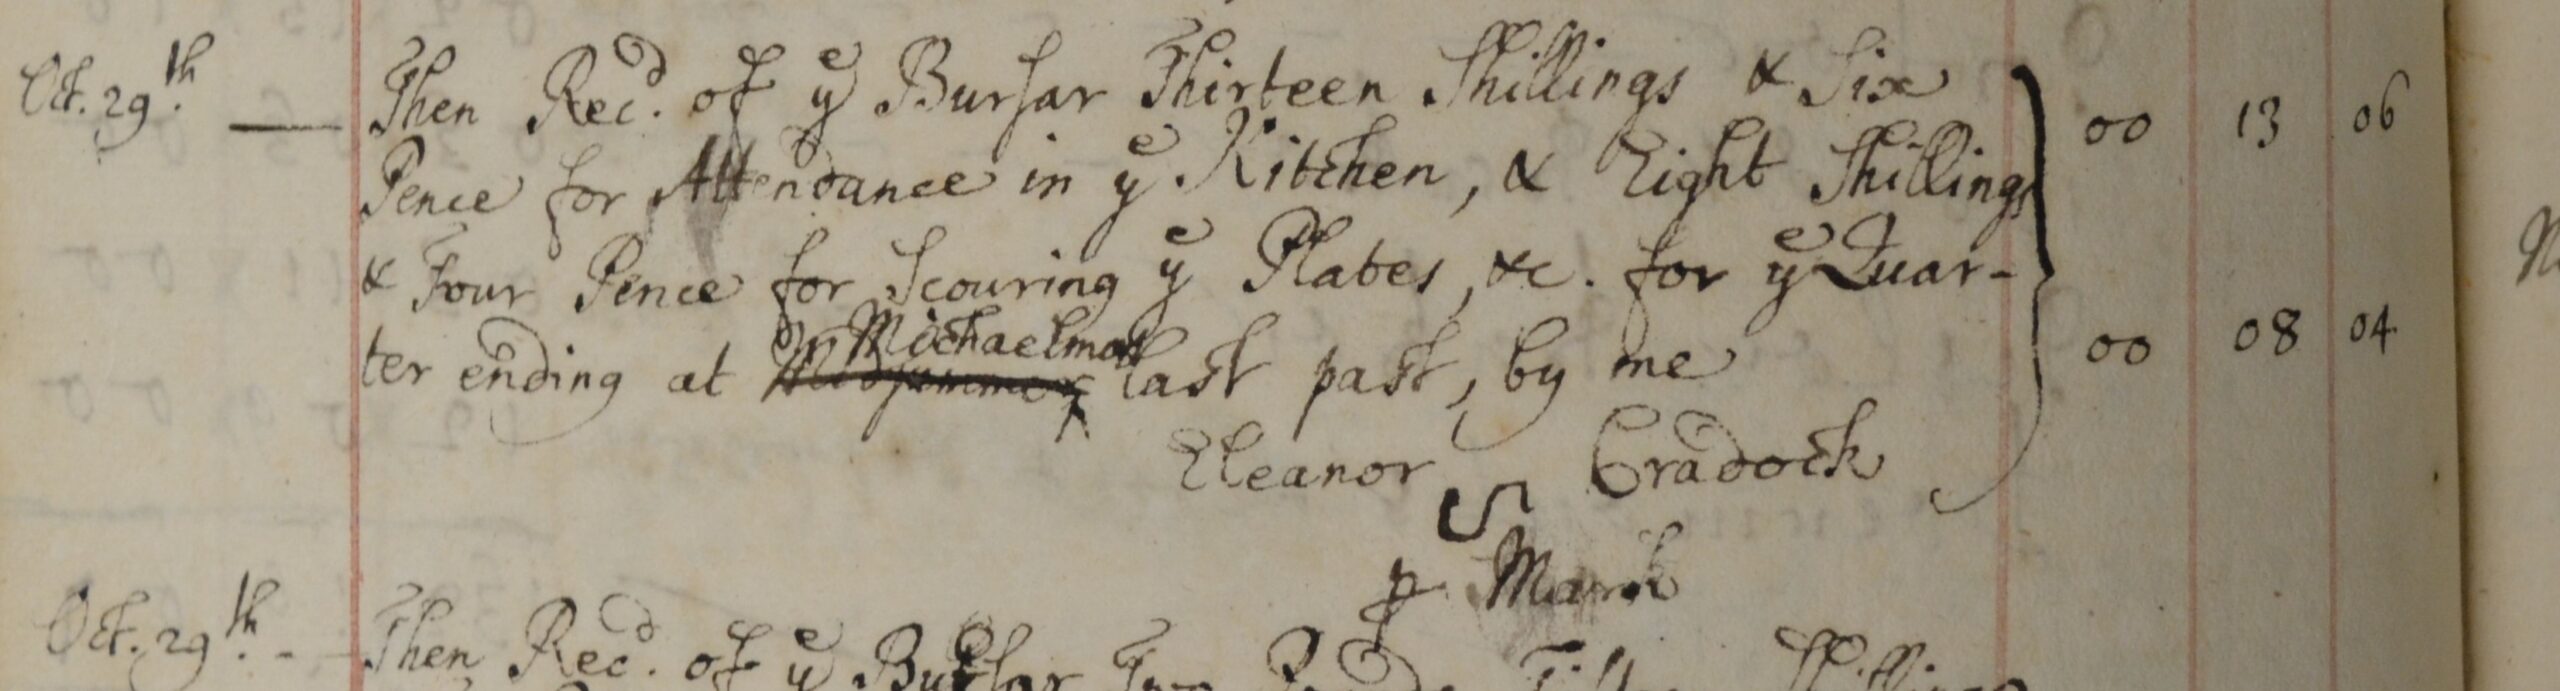 Oct. 29th. — Then Rec'd. of ye Bursar Thirteen Shillings & Six 00 13 06
Pence for Attendance in ye Kitchen, & Eight Shillings
& Four Pence for Scouring ye Plates, &c. for ye Quar-
Michaelmas
ter ending at Midsummer last past, by me 00 08 04
Eleanor Cradock
p Mark
Oct. 29th. - - Then Rec'd. of ye Bursar Two Pounds Shillings